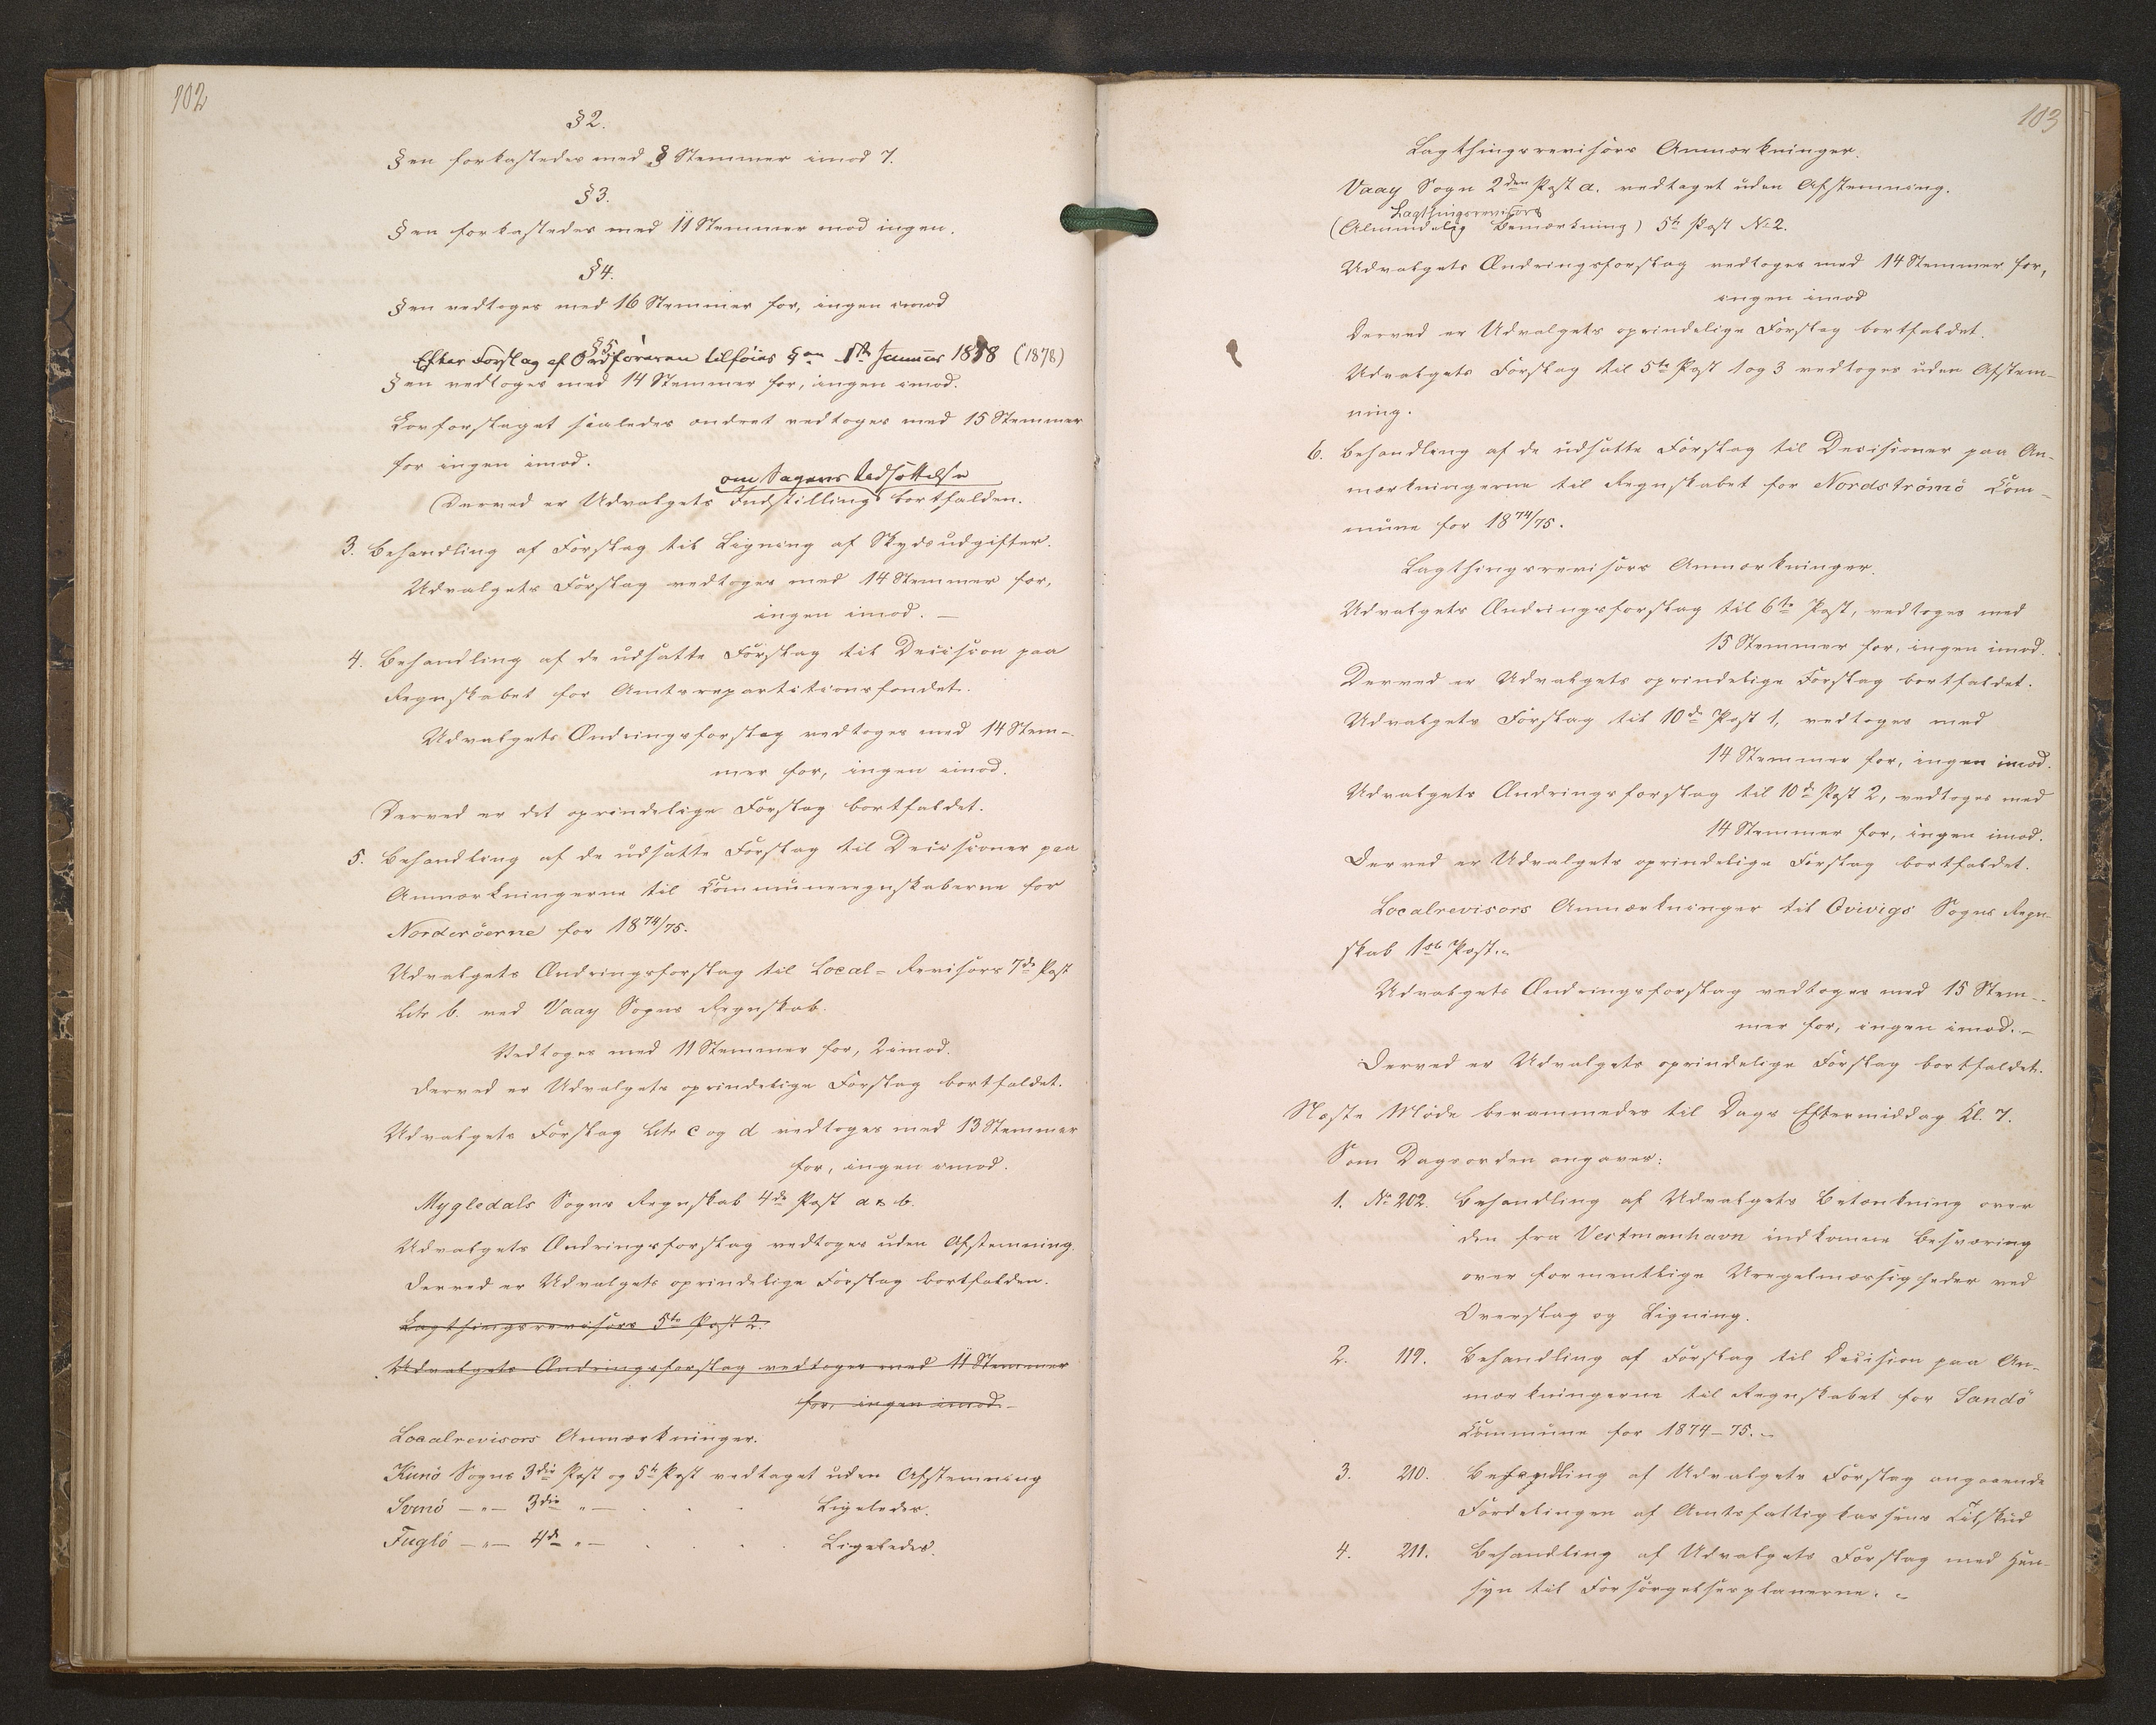 102
§ 2.
§en forkastedes med 8 Stemmer imod 7.
§ 3.
§en forkastedes med 11 Stemmer mod ingen.
§ 4.
§en vedtoges med 16 Stemmer for, ingen imod
§ 5.
Efter Forslag af Ordföreren tilföies §en 1ste Januar 1878 (1878)
§en vedtoges med 14 Stemmer for, ingen imod.
Lovforslaget saaledes ændret vedtoges med 15 Stemmer
for ingen imod.
om Sagens Udsættelse
(Derved er Udvalgets Indstilling bortfalden.
3. Behandling af Forslag til Ligning af Skydsudgifter.
Udvalgets Forslag vedtoges med 14 Stemmer for,
ingen imod. —
4. Behandling af de udsatte Forslag til Decision paa
Regnskabet for Amtsrepartitionsfondet.
Udvalgets Ændringsforslag vedtoges med 14 Stem-
mer for, ingen imod.
Derved er det oprindelige Forslag bortfaldet.
5. Behandling af de udsatte Forslag til Decisioner paa
Anmærkningerne til Communeregnskaberne for
Norderöerne for 1874/75.
Udvalgets Ændringsforslag til Local-Revisors 7de Post
Litr b. ved Vaay Sogns Regnskab.
Vedtoges med 11 Stemmer for, 2 imod.
Derved er Udvalgets oprindelige Forslag bortfaldet.
Udvalgets Forslag Litr c og d vedtoges med 13 Stemmer
for, ingen imod.
Mygledals Sogns Regnskab 4de Post a & b.
Udvalgets Ændringsforslag vedtoges uden Afstemning.
Derved er Udvalgets oprindelige Forslag bortfalden.
Lagthingsrevisors 5te Post 2.
Udvalgets Ændringsforslag vedtoges med 11 Stemmer
for, ingen imod.
Localrevisors Anmærkninger.
Kunö Sogns 3die Post og 5te Post vedtaget uden Afstemning
Svinö — " — 3die " — . . . Ligeledes.
Fuglö — " — 4de " — . . . . Ligeledes.
103
Lagthingsrevisors Anmærkninger.
Vaay Sogn 2den Post a. vedtaget uden Afstemning.
Lagthingsrevisors
(Almindelig Bemærkning) 5te Post No 2.
Udvalgets Ændringsforslag vedtoges med 14 Stemmer for,
ingen imod
Derved er Udvalgets oprindelige Forslag bortfaldet.
Udvalgets Forslag til 5te Post 1 og 3 vedtoges uden Afstem-
ning.
6. Behandling af de udsatte Forslag til Decisioner paa An-
mærkningerne til Regnskabet for Nordströmö Com-
mune for 1874/75.
Lagthingsrevisors Anmærkninger.
Udvalgets Ændringsforslag til 6te Post, vedtoges med
15 Stemmer for, ingen imod.
Derved er Udvalgets oprindelige Forslag bortfaldet.
Udvalgets Forslag til 10de Post 1, vedtoges med
14 Stemmer for, ingen imod.
Udvalgets Ændringsforslag til 10de Post 2, vedtoges med
14 Stemmer for, ingen imod.
Derved er Udvalgets oprindelige Forslag bortfaldet.
Localrevisors Anmærkninger til Qvivigs Sogns Regn-
skab 1ste Post.
Udvalgets Ændringsforslag vedtoges med 15 Stem-
mer for, ingen imod. —
Derved er Udvalgets oprindelige Forslag bortfaldet.
Næste Möde berammedes til Dags Eftermiddag Kl. 7.
Som Dagsorden angaves:
1. No 202. Behandling af Udvalgets Betænkning over
den fra Vestmanhavn indkomne Besværing
over formentlige Uregelmæssigheder ved
Overslag og Ligning.
2. 119. Behandling af Forslag til Decision paa An-
mærkningerne til Regnskabet for Sandö
Commune for 1874-75.
3. 210. Behandling af Udvalgets Forslag angaaende
Fordelingen af Amtsfattigkassens Tilskud
4. 211. Behandling af Udvalgets Forslag med Hen-
syn til Forsörgelsesplanerne.